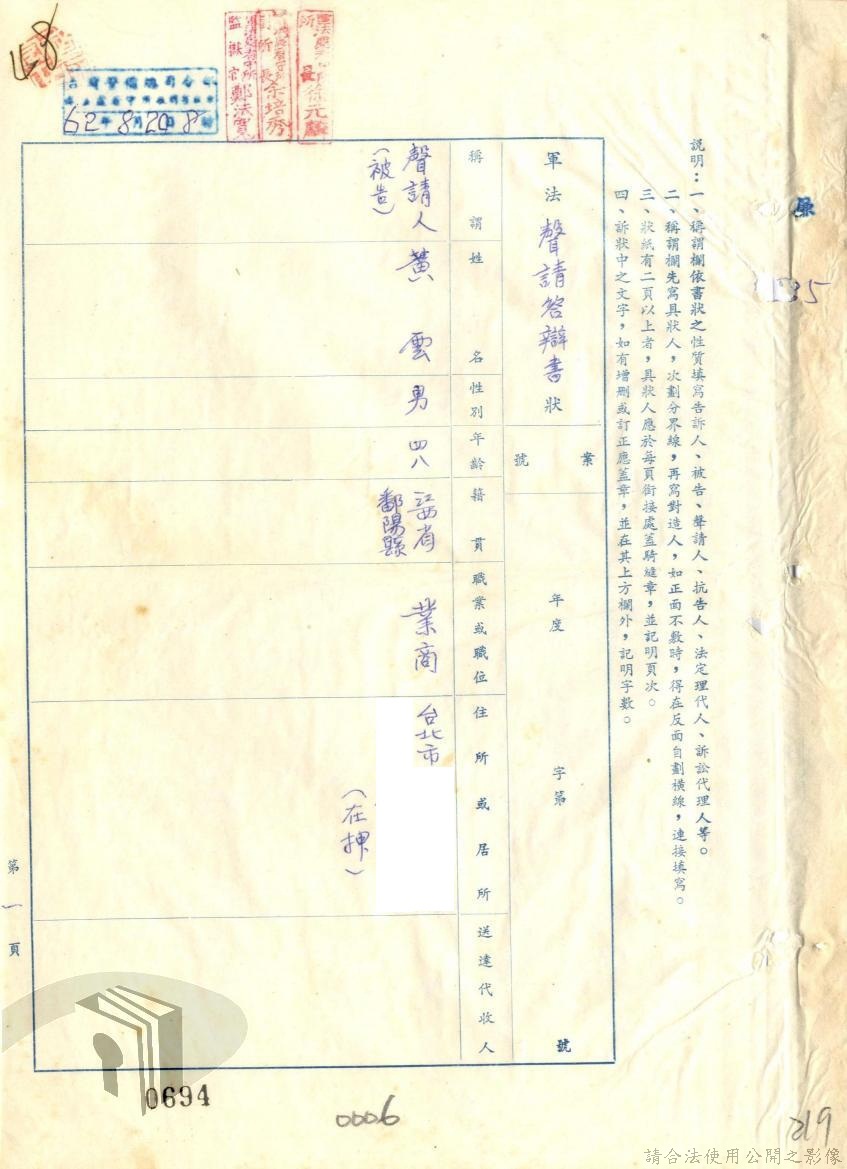 說明：一、稱謂欄依書狀之性質填寫告訴人、被告、聲請人、抗告人、法定代理人、訴訟代理人等。
二、稱謂欄先寫具狀人，次劃分界線，再寫對造人，如正面不敷時，得在反面自劃橫線，連接填寫。
三、狀紙有二頁以上者，具狀人應於每頁銜接處蓋騎縫章，並記明頁次。
四、訴狀中之文字，如有增刪或訂正應蓋章，並在其上方欄外，記明字數。
軍法聲請答辯書狀
案號
年度 字第 號
稱謂
姓名
性別
年齡
籍貫
職業或職位
住所或居所
送達代收人
聲請人
(被告)
黃雲
男
四八
江西省
鄱陽縣
業商
台北市
(在押)
第一頁
62年8月20日8時
0694
0006
219
請合法使用公開之影像